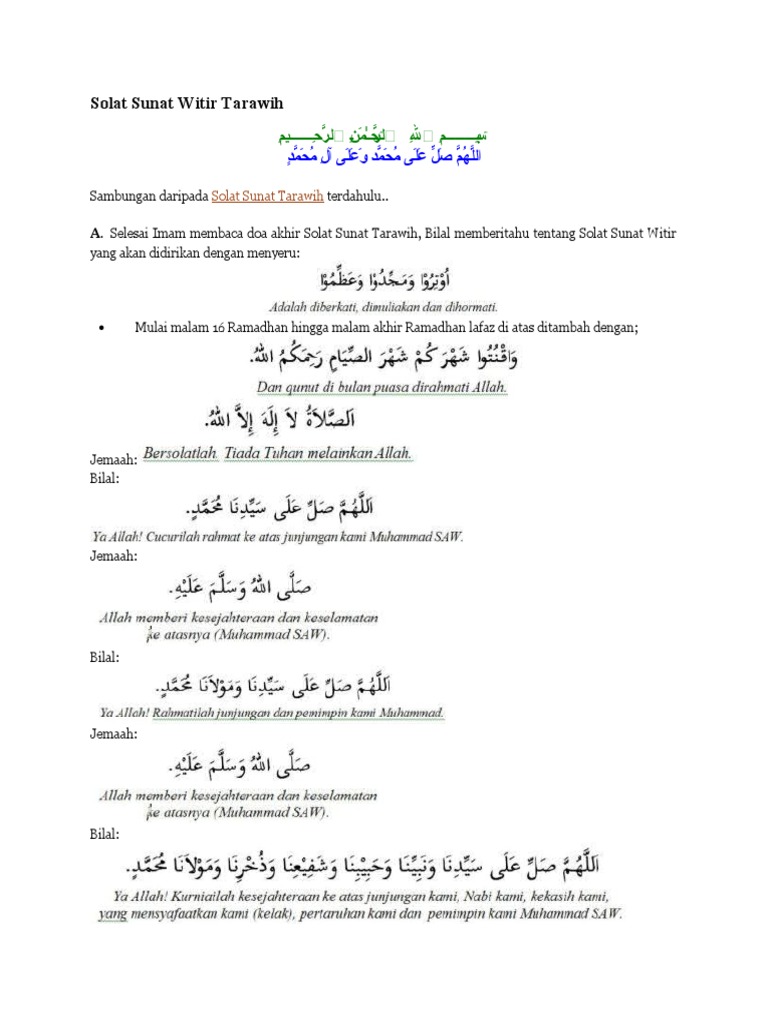 Solat Sunat Witir Tarawih
اللَّهُمَّ صَلِّ عَلَى مُحَمَّدٍ وَعَلَى آلِ مُحَمَّدٍ
Sambungan daripada Solat Sunat Tarawih terdahulu..
A. Selesai Imam membaca doa akhir Solat Sunat Tarawih, Bilal memberitahu tentang Solat Sunat Witir
yang akan didirikan dengan menyeru:
اُوْتِرُوْا وَمَجِّدُوْا وَعَظِّمُوْا
Adalah diberkati, dimuliakan dan dihormati.
• Mulai malam 16 Ramadhan hingga malam akhir Ramadhan lafaz di atas ditambah dengan;
وَاقْنُتُوا شَهْرَكُمْ شَهْرَ الصِّيَامِ رَحِمَكُمُ اللهُ.
Dan qunut di bulan puasa dirahmati Allah.
اَلصَّلاَةُ لاَ إِلَهَ إِلاَّ اللهُ.
Jemaah: Bersolatlah. Tiada Tuhan melainkan Allah.
Bilal:
اَللَّهُمَّ صَلِّ عَلَى سَيِّدِنَا مُحَمَّدٍ.
Ya Allah! Cucurilah rahmat ke atas junjungan kami Muhammad SAW.
Jemaah:
صَلَّى اللهُ وَسَلَّمَ عَلَيْهِ.
Allah memberi kesejahteraan dan keselamatan
ke atasnya (Muhammad SAW).
Bilal:
اَللَّهُمَّ صَلِّ عَلَى سَيِّدِنَا وَمَوْلاَنَا مُحَمَّدٍ.
Ya Allah! Rahmatilah junjungan dan pemimpin kami Muhammad.
Jemaah:
صَلَّى اللهُ وَسَلَّمَ عَلَيْهِ.
Allah memberi kesejahteraan dan keselamatan
ke atasnya (Muhammad SAW).
Bilal:
اَللَّهُمَّ صَلِّ عَلَى سَيِّدِنَا وَنَبِيِّنَا وَحَبِيْبِنَا وَشَفِيْعِنَا وَذُخْرِنَا وَمَوْلاَنَا مُحَمَّدٍ.
Ya Allah! Kurniailah kesejahteraan ke atas junjungan kami, Nabi kami, kekasih kami,
yang mensyafaatkan kami (kelak), pertaruhan kami dan pemimpin kami Muhammad SAW.